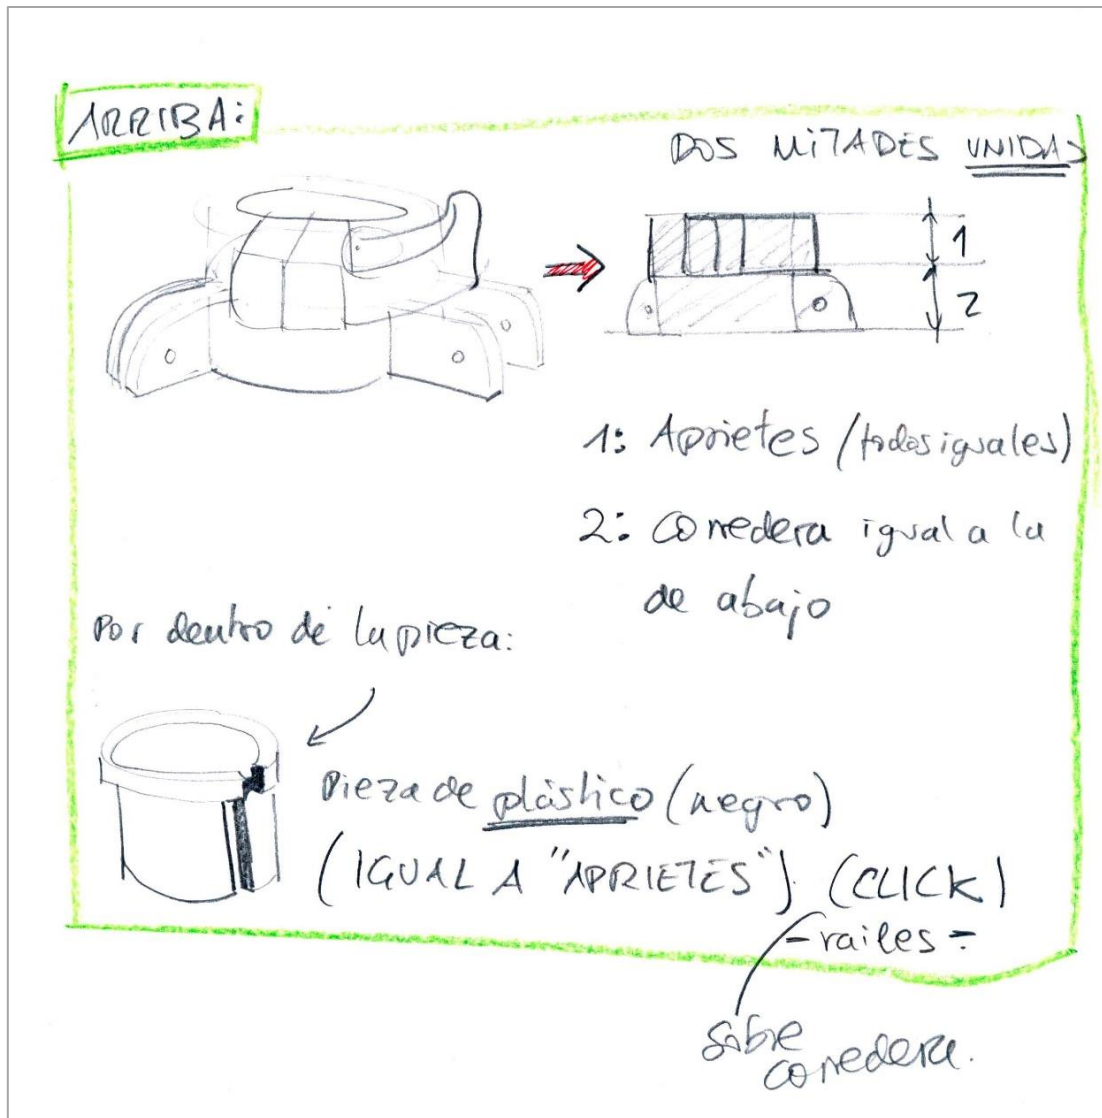 ARRIBA:
DOS MITADES UNIDAS
1
2
1: Aprietes (todos iguales)
2: corredera igual a la
de abajo
Por dentro de la pieza:
Pieza de plástico (negro)
(IGUAL A "APRIETES") (CLICK)
- railes -
sobre
corredera.